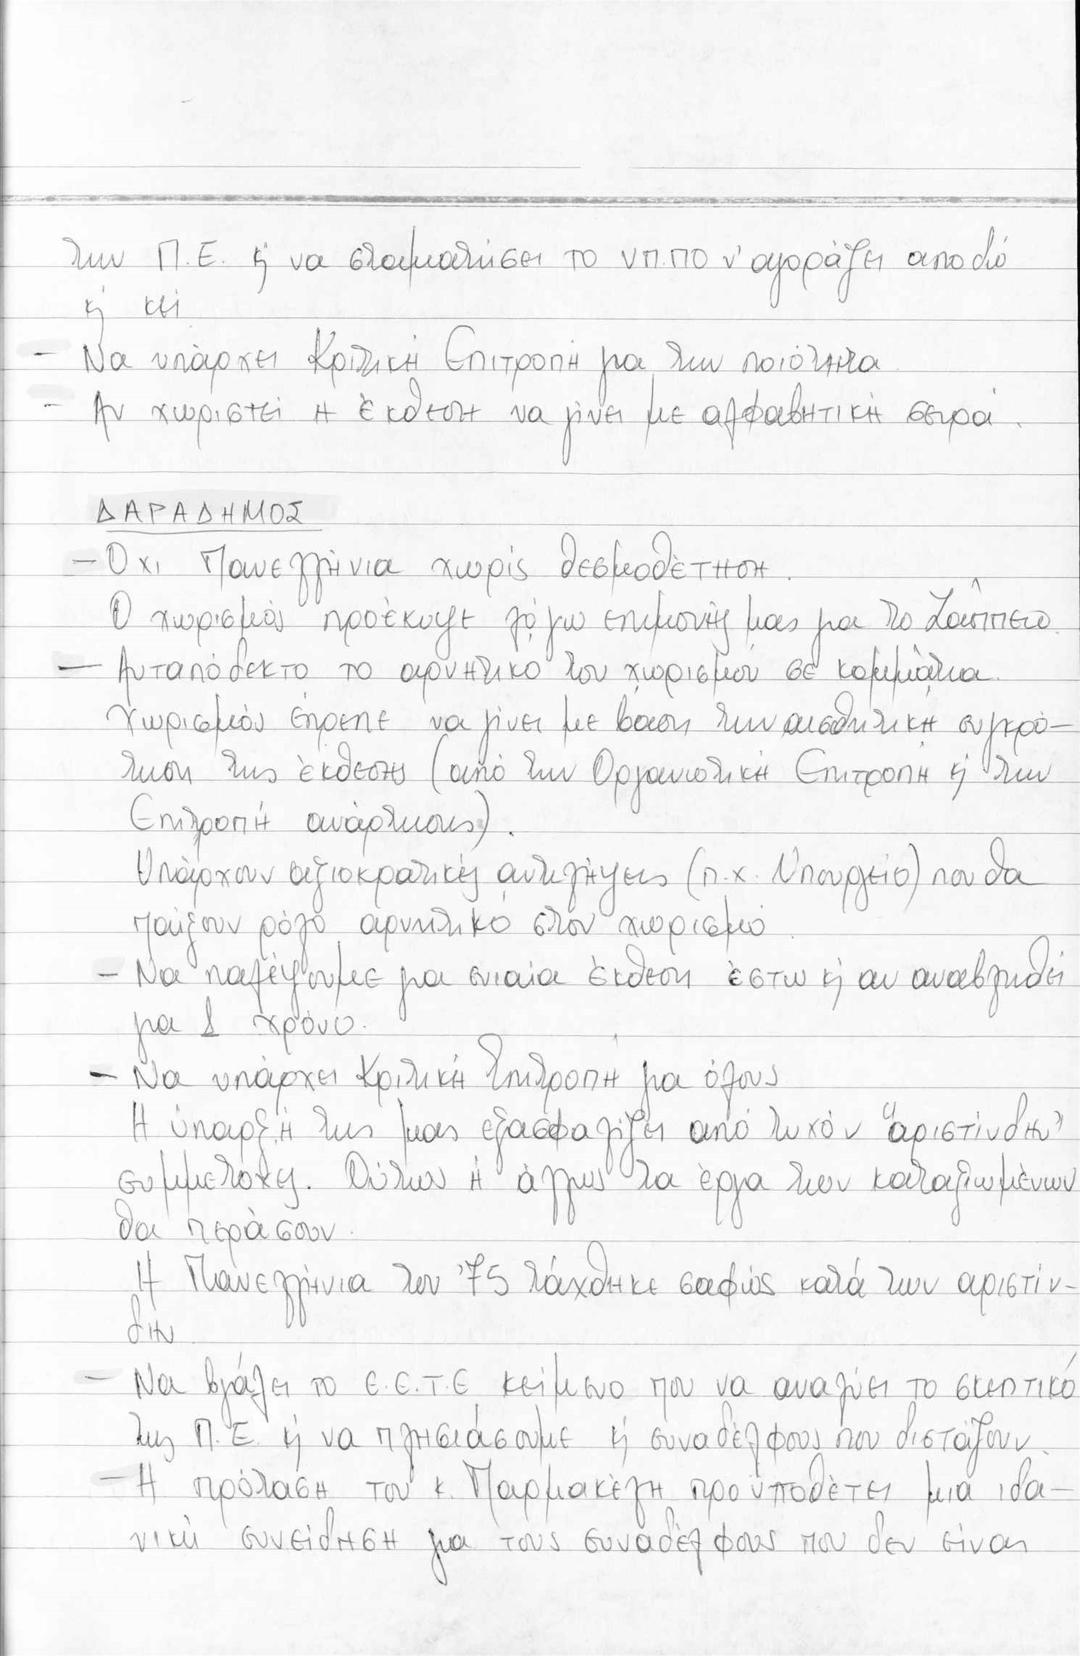 την Π.Ε. ή να σταματήσει το ΥΠ.ΠΟ ν' αγοράζει από δω
ή κεί
- Να υπάρχει Κριτική Επιτροπή για την ποιότητα
- Αν χωριστεί η έκθεση να γίνει με αλφαβητική σειρά.
ΔΑΡΑΔΗΜΟΣ
- Όχι Πανελλήνια χωρίς θεσμοθέτηση.
Ο χωρισμός προέκυψε λόγω επιμονής μας για το Ζάππειο.
- Αυταπόδεκτο το αρνητικό του χωρισμού σε κομμάτια.
Χωρισμός έπρεπε να γίνει με βάση την αισθητική συγκρό-
τηση της έκθεσης (από την Οργανωτική Επιτροπή ή την
Επιτροπή ανάρτησης).
Υπάρχουν αξιοκρατικές αντιλήψεις (π.χ. Υπουργείο) που θα
παίξουν ρόλο αρνητικό στον χωρισμό.
- Να παλέψουμε για ενιαία έκθεση έστω κι αν αναβληθεί
για 1 χρόνο.
- Να υπάρχει Κριτική Επιτροπή για όλους
Η ύπαρξή της μας εξασφαλίζει από τυχόν "αριστίνδην"
συμμετοχές. Ούτως ή άλλως τα έργα των καταξιωμένων
θα περάσουν.
Η Πανελλήνια του '75 τάχθηκε σαφώς κατά των αριστίν-
δην
- Να βγάλει το Ε.Ε.Τ.Ε κείμενο που να αναλύει το σκεπτικό
της Π.Ε. ή να πλησιάσουμε ή συναδέλφους που διστάζουν.
- Η πρόταση του κ. Παρμακέλη προϋποθέτει μια ιδα-
νική συνείδηση για τους συναδέλφους που δεν είναι